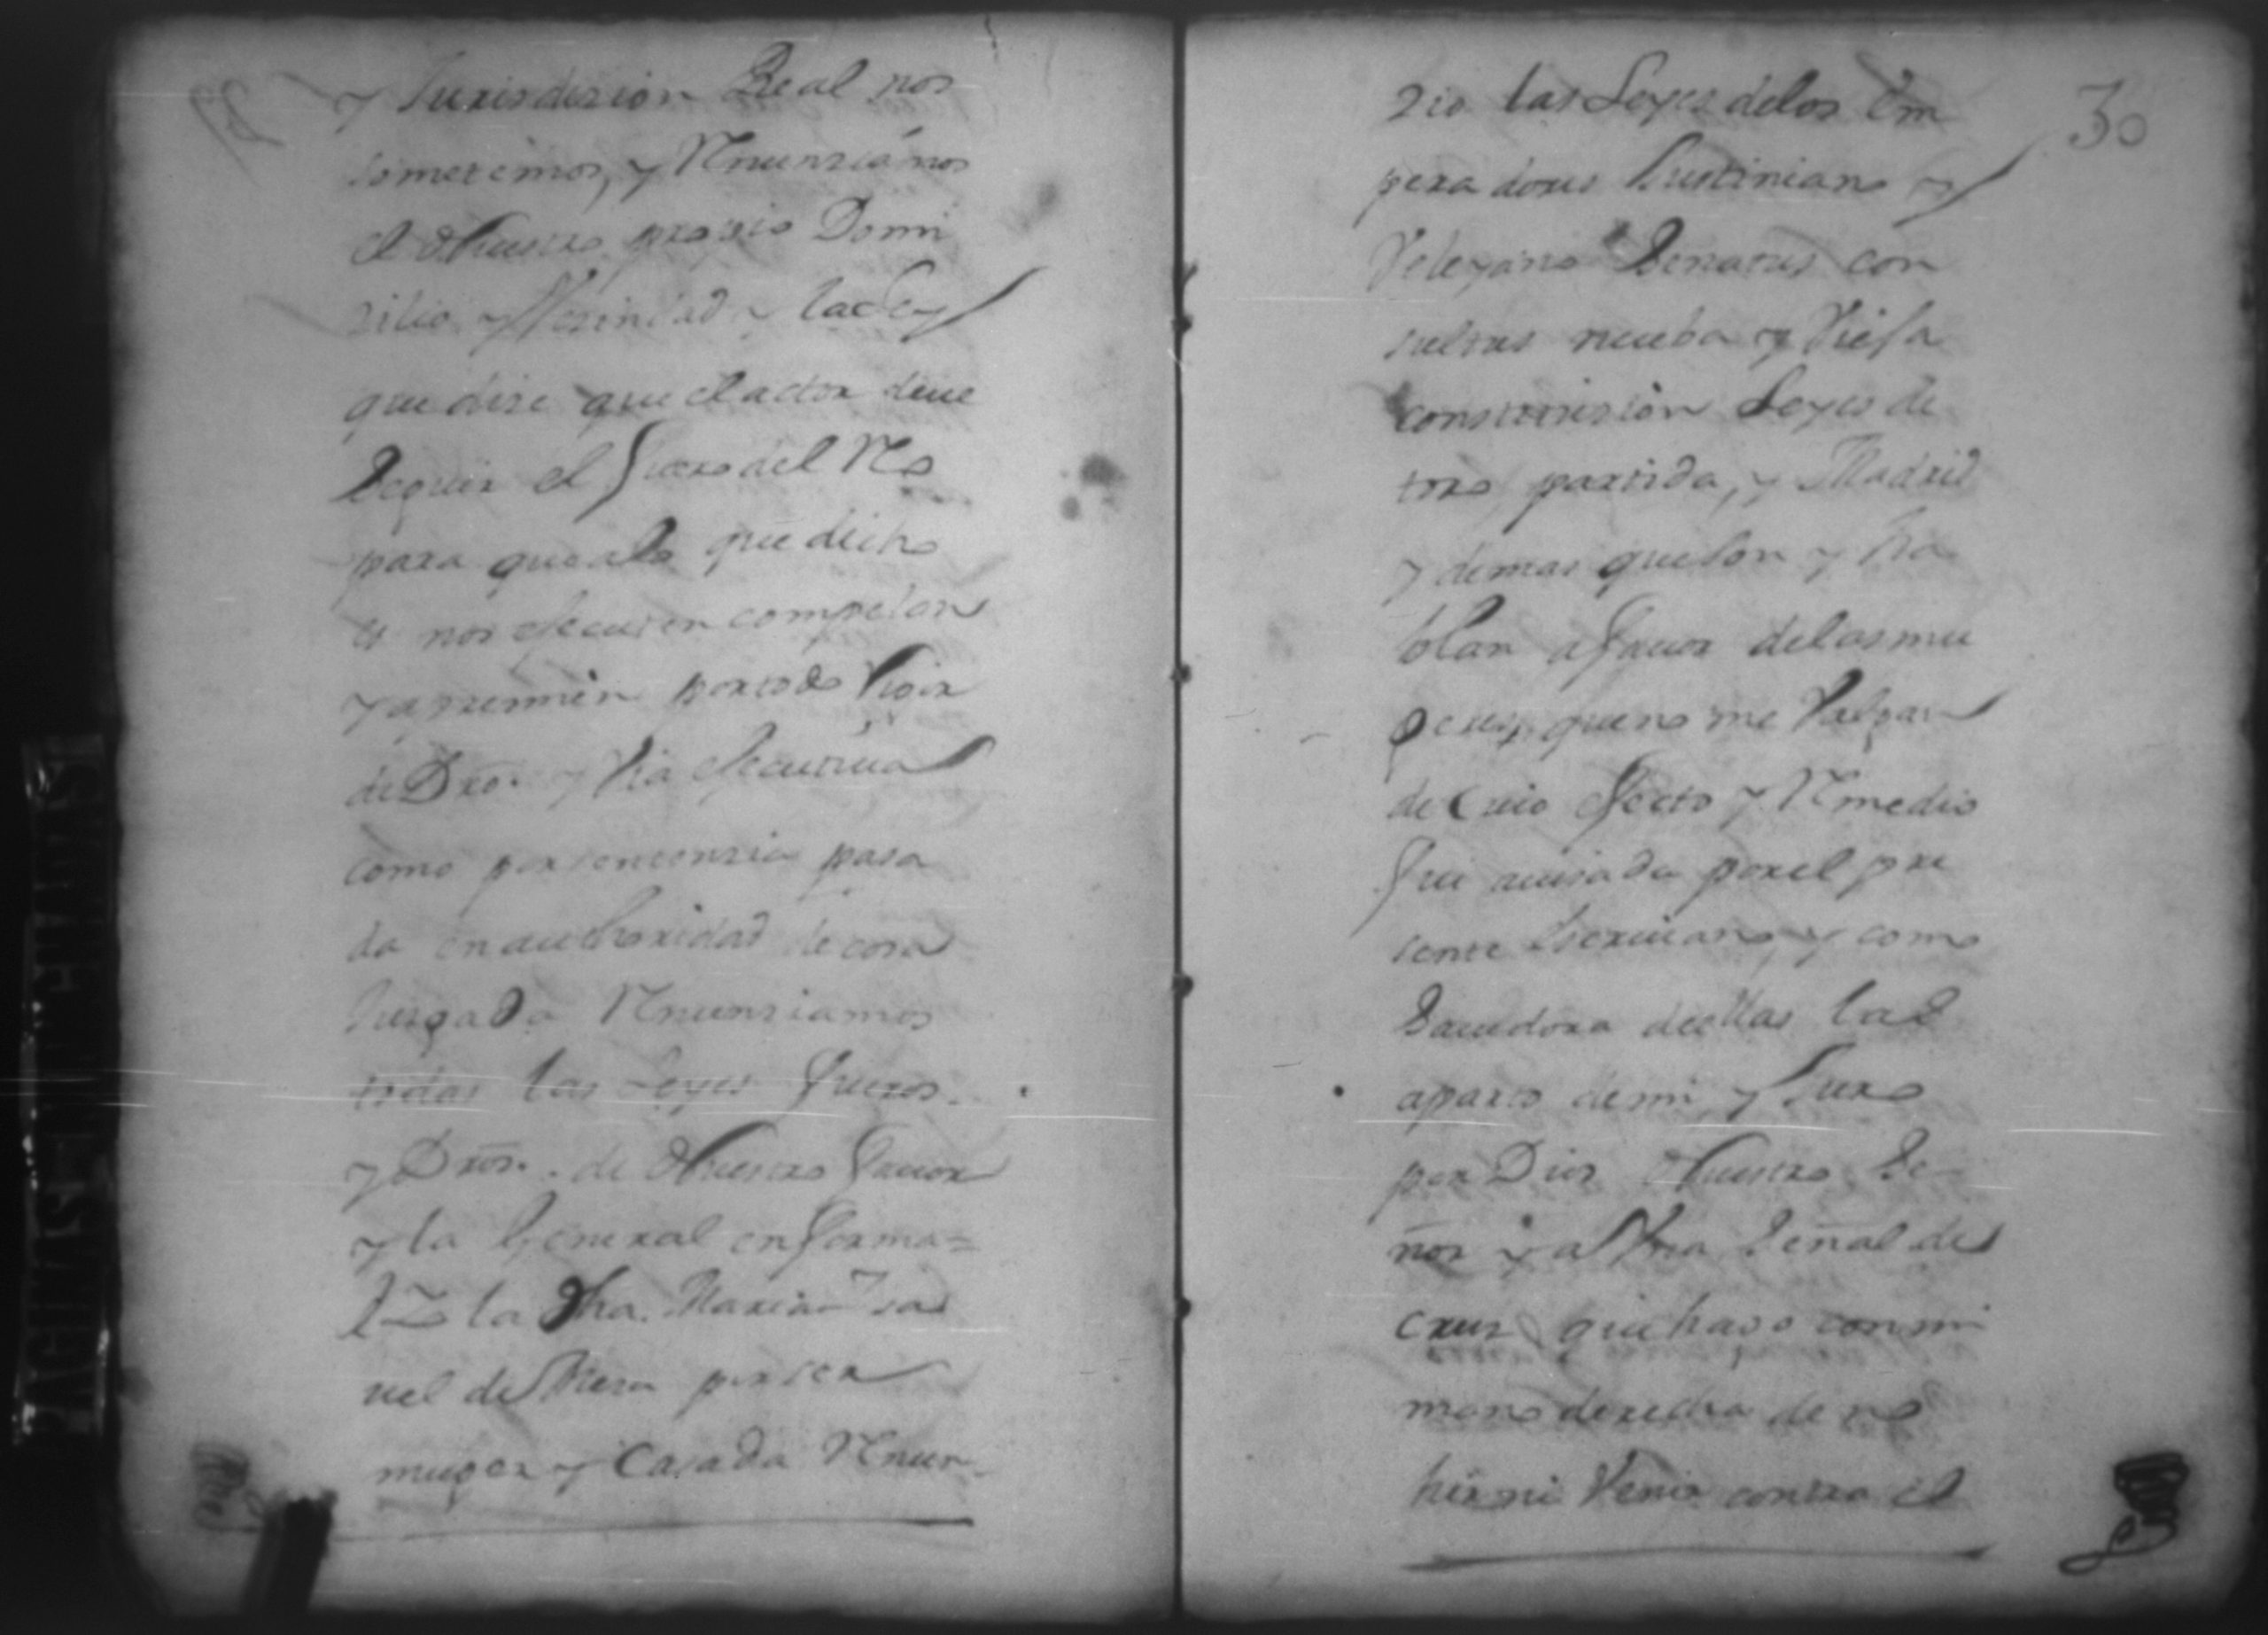 y Jurisdizion Real nos
sometemos, y Rnunziamos
el Nuestro propio Domi
zilio y Vezindad y la Ley
que dize que el actor deue
Seguir el fuero del Reo
para que alo que dicho
es nos executen compelan
y apremien por todo Rigor
de Dro. y Via executiua
como por sentenzia pasa
da en authoridad de cosa
Juzgada Rnunziamos
todas las Leyes fueros
y Dros. de Nuestro fauor
y la General en forma=
la dha. Maria
de Mesa por ser
muger y Casada Rnun-
30
zio las Leyes delos Em
peradores Justiniano y
Veleyano Senatus con
sultus nueba y Vieja
constituzion Leyes de
toro, partida, y Madrid
y demas que son y ha
blan a fauor delas mu
geres, que no me Valgan
de cuio efecto y Rmedio
fui auisada por el pre
sente Escriuano, y como
Sauidora de ellas las
aparto de mi, y Juro
por Dios Nuestro Se
ñor y a Vna Señal de
Cruz que hago con mi
mano derecha de no
hir ni Venir contra el